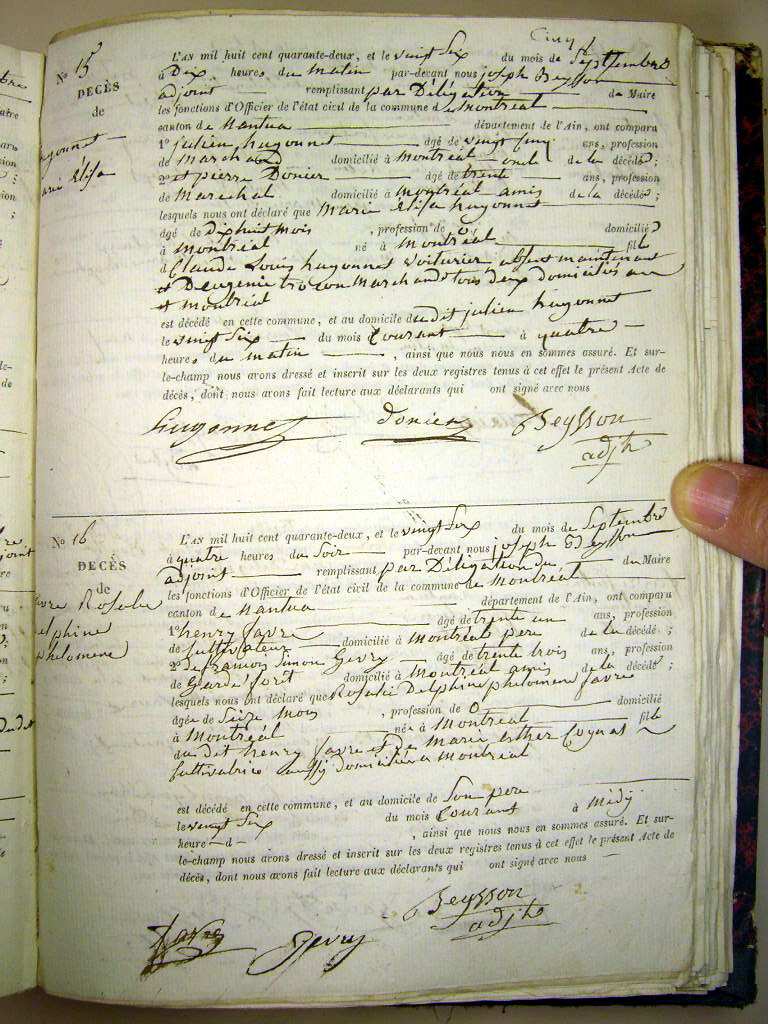 No 15
DÉCÈS
de
hugonnet
marie élisa
L'AN mil huit cent quarante-deux, et le vingt Six du mois de Septembre
à Dix heures du matin par-devant nous joseph Beysson
adjoint remplissant par Déligation du Maire
les fonctions d'Officier de l'état civil de la commune de Montréal
canton de Nantua département de l'Ain, ont comparu
1° julien hugonnet âgé de vingt cinq ans, profession
de Marchand domicilié à Montréal oncle de la décédé ;
2° et pierre Donier âgé de trente ans, profession
de Marechal domicilié à montréal amis de la décédé ;
lesquels nous ont déclaré que Marie élisa hugonnet
âgé de Dixhuit mois , profession de 0 domicilié
à montréal né à Montréal fille
d Claude Louis hugonnet voiturier absent maintenant
et D'eugenie trocon Marchande tous deux domiciliés au
et montréal
est décédé en cette commune, et au domicile du dit julien hugonnet
le vingt Six du mois Courant à quatre
heures du matin , ainsi que nous nous en sommes assuré. Et sur-
le-champ nous avons dressé et inscrit sur les deux registres tenus à cet effet le présent Acte de
décès, dont nous avons fait lecture aux déclarants qui ont signé avec nous
hugonnet donier Beysson
adjt
No 16
DÉCÈS
de
favre Rosalie
delphine
philomene
L'AN mil huit cent quarante-deux, et le vingt Six du mois de Septembre
à quatre heures du Soir par-devant nous joseph Beysson
adjoint remplissant par Déligation du Maire
les fonctions d'Officier de l'état civil de la commune de Montréal
canton de Nantua département de l'Ain, ont comparu
1° henry favre âgé de trente un ans, profession
de Cultivateur domicilié à Montréal pere de la décédé ;
2° de francois Simon Gevry âgé de trente trois ans, profession
de Garde forêt domicilié à Montréal amis de la décédé ;
lesquels nous ont déclaré que Rosalie Delphine philomene favre
âgée de Seize Mois , profession de 0 domicilié
à Montréal née à Montréal fille
du dit henry favre et de Marie esther
Cultivatrice aussy domiciliée a Montréal
est décédé en cette commune, et au domicile de Son pere
le vingt Six du mois Courant à midy
heure d , ainsi que nous nous en sommes assuré. Et sur-
le-champ nous avons dressé et inscrit sur les deux registres tenus à cet effet le présent Acte de
décès, dont nous avons fait lecture aux déclarants qui ont signé avec nous
Beysson
adjt
favre Gevry